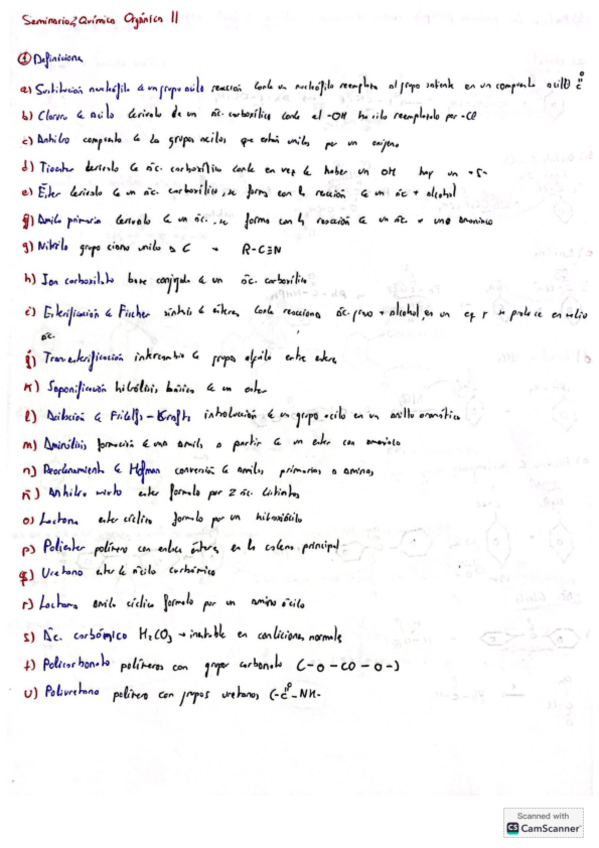 Seminario 2 Química Orgánica II
① Definiciones
a) Sustitución nucleófila a un grupo acilo reacción donde un nucleófilo reemplaza al grupo saliente en un compuesto acilo O C
b) Cloruro de acilo derivado de un ác. carboxílico donde el -OH ha sido reemplazado por -Cl
c) Anhidro compuesto de dos grupos acilos que están unidos por un oxígeno
d) Tioester derivado de ác. carboxílico donde en vez de haber un OH hay un -S-
e) Éster derivado de un ác. carboxílico, se forma con la reacción de un ác + alcohol
f) Amida primaria derivada de un ác. se forma con la reacción de un ác. + una amoniaco
g) Nitrilo grupo ciano unido a C → R-C≡N
h) Ion carboxilato base conjugada de un ác. carboxílico
i) Esterificación de Fischer síntesis de ésteres donde reacciona ác. graso + alcohol, en un eq y se produce en medio
ác.
j) Transesterificación intercambio de grupos alquilo entre esteres
k) Saponificación hidrólisis básica de un ester
l) Acilación de Fridelfs-Krafts introducción de un grupo acilo en un anillo aromático
m) Aminólisis formación de una amida a partir de un ester con amoniaco
n) Reordenamiento de Hofman conversión de amidas primarias a aminas
ñ) Anhidro mixto ester formado por 2 ác. distintos
o) Lactona ester cíclico formado por un hidroxiácido
p) Poliester polímero con enlaces ésteres en la cadena principal
q) Uretano ester de ácido carbámico
r) Lactama amida cíclica formada por un amino ácido
s) Ác. carbómico H₂CO₃ → inestable en condiciones normales
t) Policarbonato polímeros con grupos carbonato (-O-CO-O-)
u) Poliuretano polímero con grupos uretanos (-C-NH- O
Scanned with
CS CamScanner